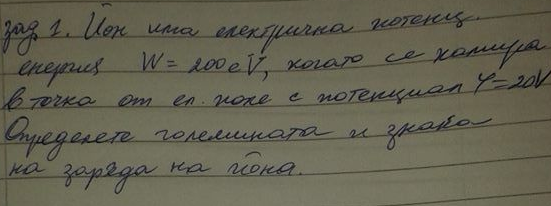 зад 1. Йон има електрична потенц.
енергия W = 200 eV, когато се намира
в точка от ел. поле с потенциал φ = 20V
Определете големината и знака
на заряда на йона.